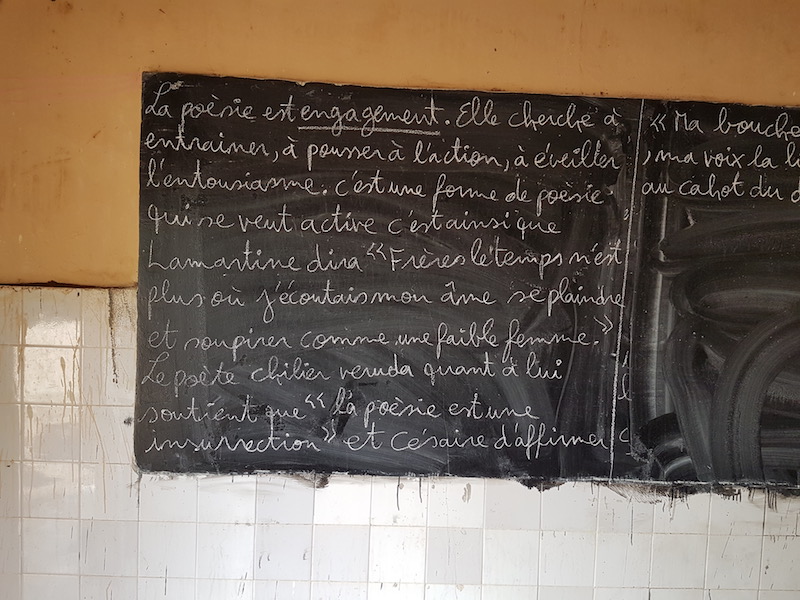 La poèsie est engagement. Elle cherche à
entrainer, à pousser à l'action, à éveiller
l'entousiasme. c'est une forme de poèsie
qui se veut active c'est ainsi que
Lamartine dira "Frères le temps n'est
plus où j'écoutais mon âme se plaindre
et soupirer comme une faible femme."
Le poète chilier veruda quant à lui
soutient que "la poèsie est une
insurrection" et Césaire d'affirmer
« Ma bouche
, ma voix la li
au cahot du d